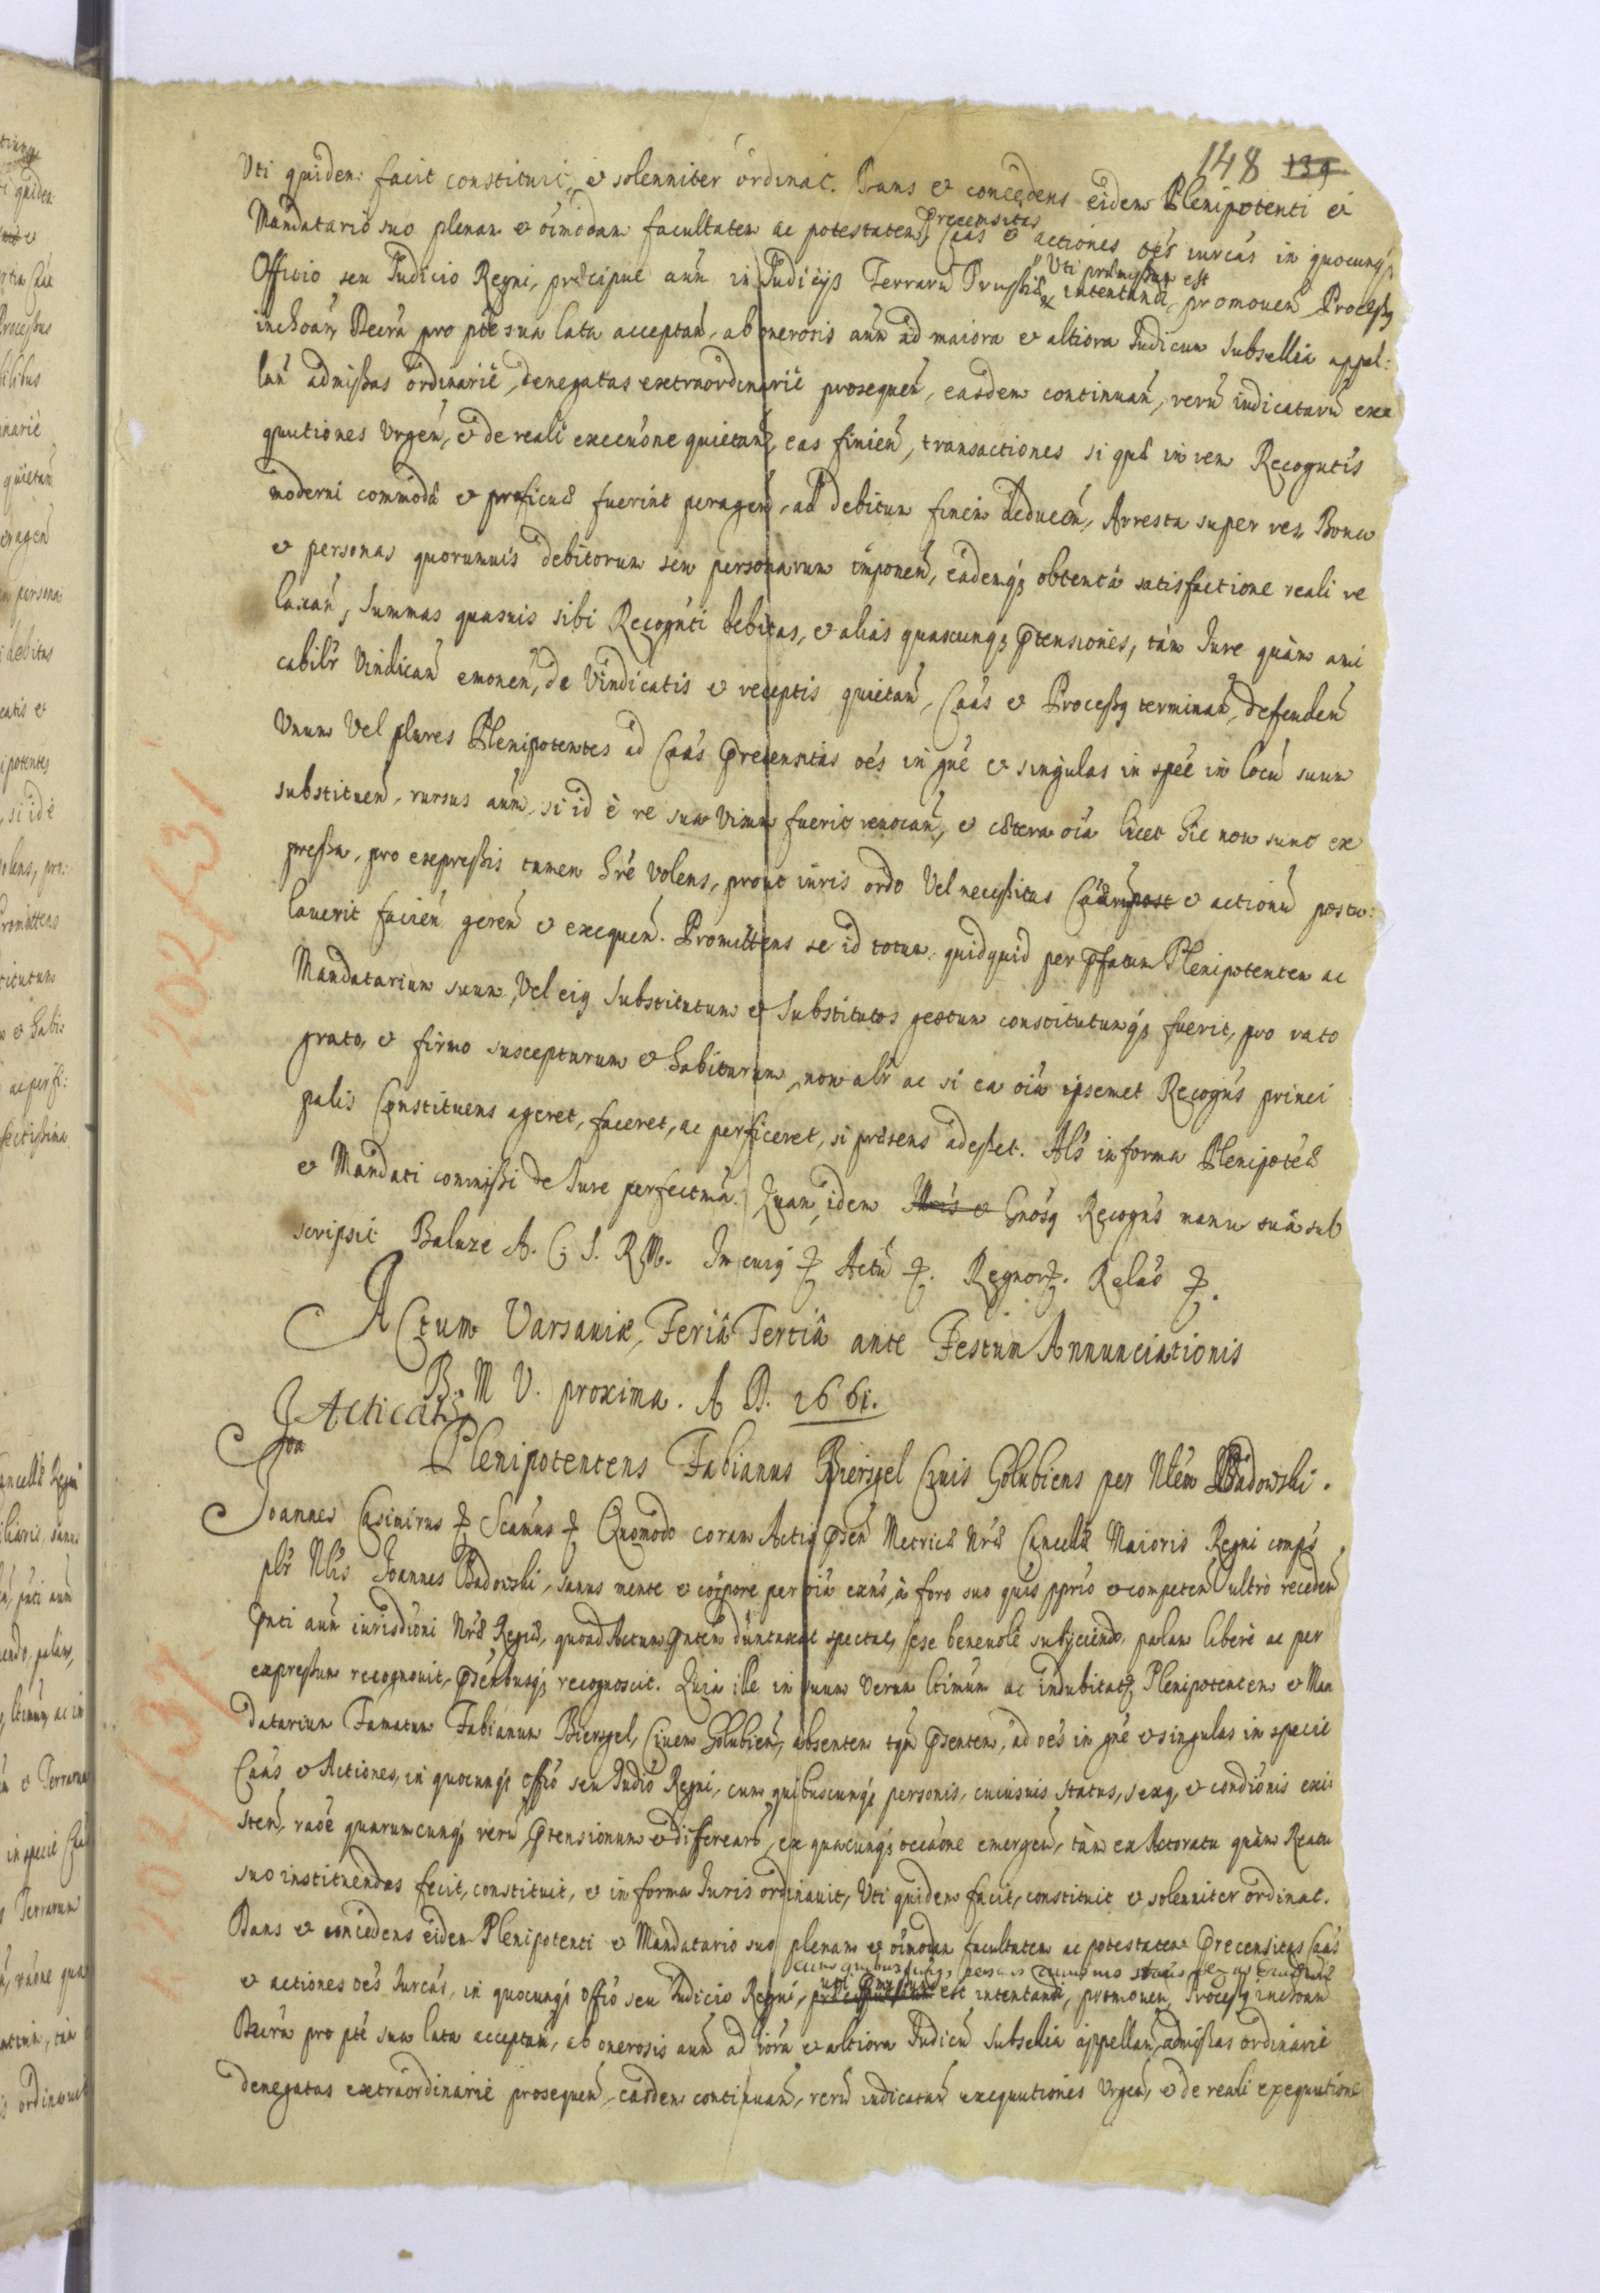 148 139
Uti quidem facit constituit, et solenniter ordinat. Dans et concedens eidem Plenipotenti et
Mandatario suo plenam et oimodam facultatem ac potestatem Precensitas Caas et actiones oes iurcas in quocunq3
Officio seu Judicio Regni, præcipue aũn in Judicijs Terrarũ Prussiæ Uti præmissum est intentandi, promouen̄ Process9
inchoan̄, Decrũ pro pte sua lata acceptan̄, ab onerosis aũn ad maiora et altiora Judicum Subsellia appel:
lan̄ admissas ordinariè, denegatas extraordinariè prosequen̄, easdem continuan̄, rerũ iudicatarũ exe
quutiones Urgen̄, et de reali execuõne quietan̄, eas finien̄, transactiones si quæ in rem Recogntis
moderni commodæ et proficuæ fuerint peragen̄, ad debitum finem deducen̄, Arresta super res, Bona
et personas quorumuis debitorum seu personarum imponen̄, eademq3 obtentâ satisfactione reali re
laxan̄, Summas quasuis sibi Recognti debitas, et alias quascunq3 Ptensiones, tàm Jure quàm ami
cabilr Vindican̄ emonen̄, de Vindicatis et receptis quietan̄, Caas et Process9 terminan̄, defenden̄
Unum Vel plures Plenipotentes ad Caas Precensitas oes in gñe et singulas in spee in locũ suum
substituen̄, rursus aũm, si id è re sua Visum fuerit reuocan̄, et cætera oia licet hic non sunt ex
pressa, pro expressis tamen hre volens, prout iuris ordo Vel necessitas Caarũ post et actionũ postu:
lauerit facien̄ geren̄ et exequen̄. Promittens se id totum, quidquid per Pfatum Plenipotentem ac
Mandatarium suum, Vel ei9 Substitutum et Substitutos gestum constitutumq3 fuerit, pro rato
grato, et firmo suscepturum et habiturum, non alr ac si ea oia ipsemet Recogns princi
palis Constituens ageret, faceret, ac perficeret, si præsens adesset. Als in forma Plenipotæ
et Mandati commissi de Jure perfectmâ. Quam, idem Gnos9 Recogns manu suâ sub
scripsit Baluze A. C. S. R. M. In cui9 Actũ Regnor Relao
Actum Varsauiæ, Feriâ Tertiâ ante Festum Annunciationis
B. M V. proxima. A D. 1661.
Acticat9
Plenipotentens Fabianus Biersgel Ciuis Golubiens per Nlem Badowski.
Joannes Casimirus Scanus Quomodo coram Actis Psen̄ Metricæ Nræ Cancellæ Maioris Regni comp's
plr Nlis Joannes Badowski, sanus mente et corpore per oia exns, à foro suo quis pprio et competen̄ ultrò receden̄
Pnti aũn iurisdioni Nræ Regiæ, quoad Actum Pntem duntaxat spectat, sese beneuolè subijciendo, palam liberè ac per
expressum recognouit, Psentibusq3 recognoscit. Quia ille in suum Verum ltimum ac indubitat, Plenipotentem et Man
datarium Famatum Fabianum Biersgel, Ciuem Golubien̄, absentem tqm Psentem, ad oes in gne et singulas in specie
Caas et Actiones, in quocunq3 offio seu Judio Regni, cum quibuscunq3 personis, cuiusuis status, sex9, et condionis exi
sten̄, raoe quarumcunq3 rerũ Ptensionum et differear, ex quacunq3 occaone emergen̄, tàm ex Actoratu quàm Reatu
suo instituendas fecit, constituit, et in forma Juris ordinauit, Uti quidem facit, constituit et solenniter ordinat.
Dans et concedens eidem Plenipotenti et Mandatario suo plenam et oimodam facultatem ac potestatem Precensitas Caas
cum quibuscunq3 personis cuiusuis status
et actiones oes Iurcas, in quocunq3 offio seu Judicio Regni, uti præmissum est intentandi, promouen̄, Process9 inchoan̄
Decrũ pro pte sua lata acceptan̄, ab onerosis aũn ad iora et altiora Judicũ Subselia appellan̄, admissas ordinariè
denegatas extraordinariè prosequen̄, easdem continuan̄, rerũ iudicatarũ exequutiones Urgen̄, et de reali exequutione